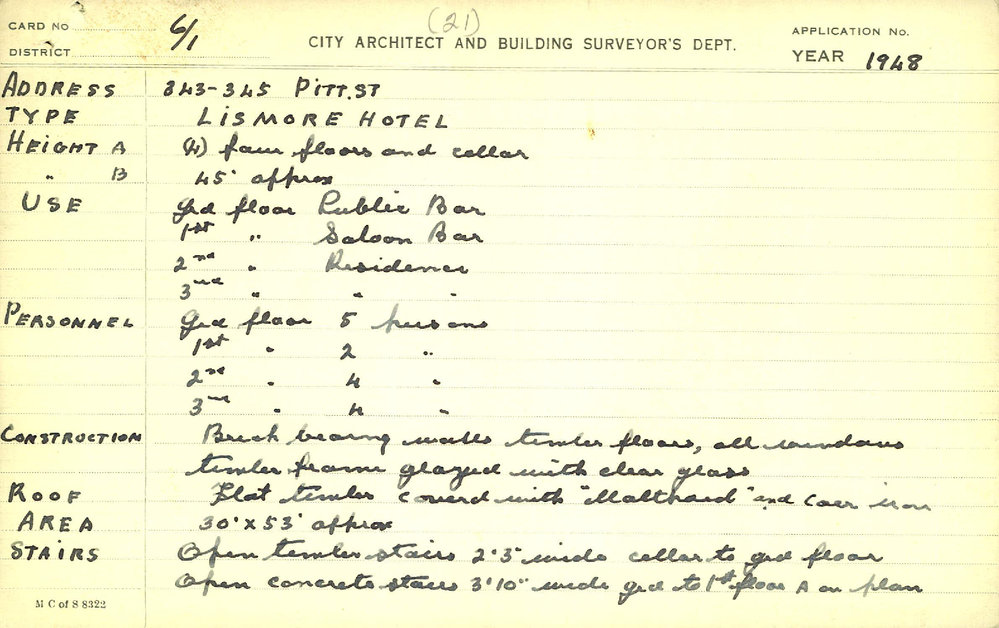 (21)
CARD No 6/1
DISTRICT
CITY ARCHITECT AND BUILDING SURVEYOR'S DEPT.
APPLICATION No.
YEAR 1948
ADDRESS 343-345 PITT.ST
TYPE LISMORE HOTEL
HEIGHT A (4) four floors and cellar
" B 45' approx
USE Grd floor Public Bar
1st " Saloon Bar
2nd " Residence
3rd " " "
PERSONNEL Grd floor 5 persons
1st " 2 "
2nd " 4 "
3rd " 4 "
CONSTRUCTION Brick bearing walls timber floors, all windows
timber frame glazed with clear glass
ROOF Flat timber covered with "Malthoid" and Corr iron
AREA 30' x 53' approx
STAIRS Open timber stairs 2'3" wide cellar to grd floor
Open concrete stairs 3'10" wide grd to 1st floor A on plan
M C of S 8322